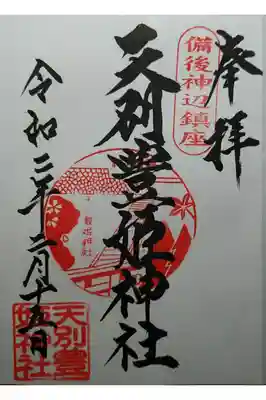 奉拝
備後神辺鎮座
天別豊姫神社
令和二年二月十五日
天別豊
姫神社